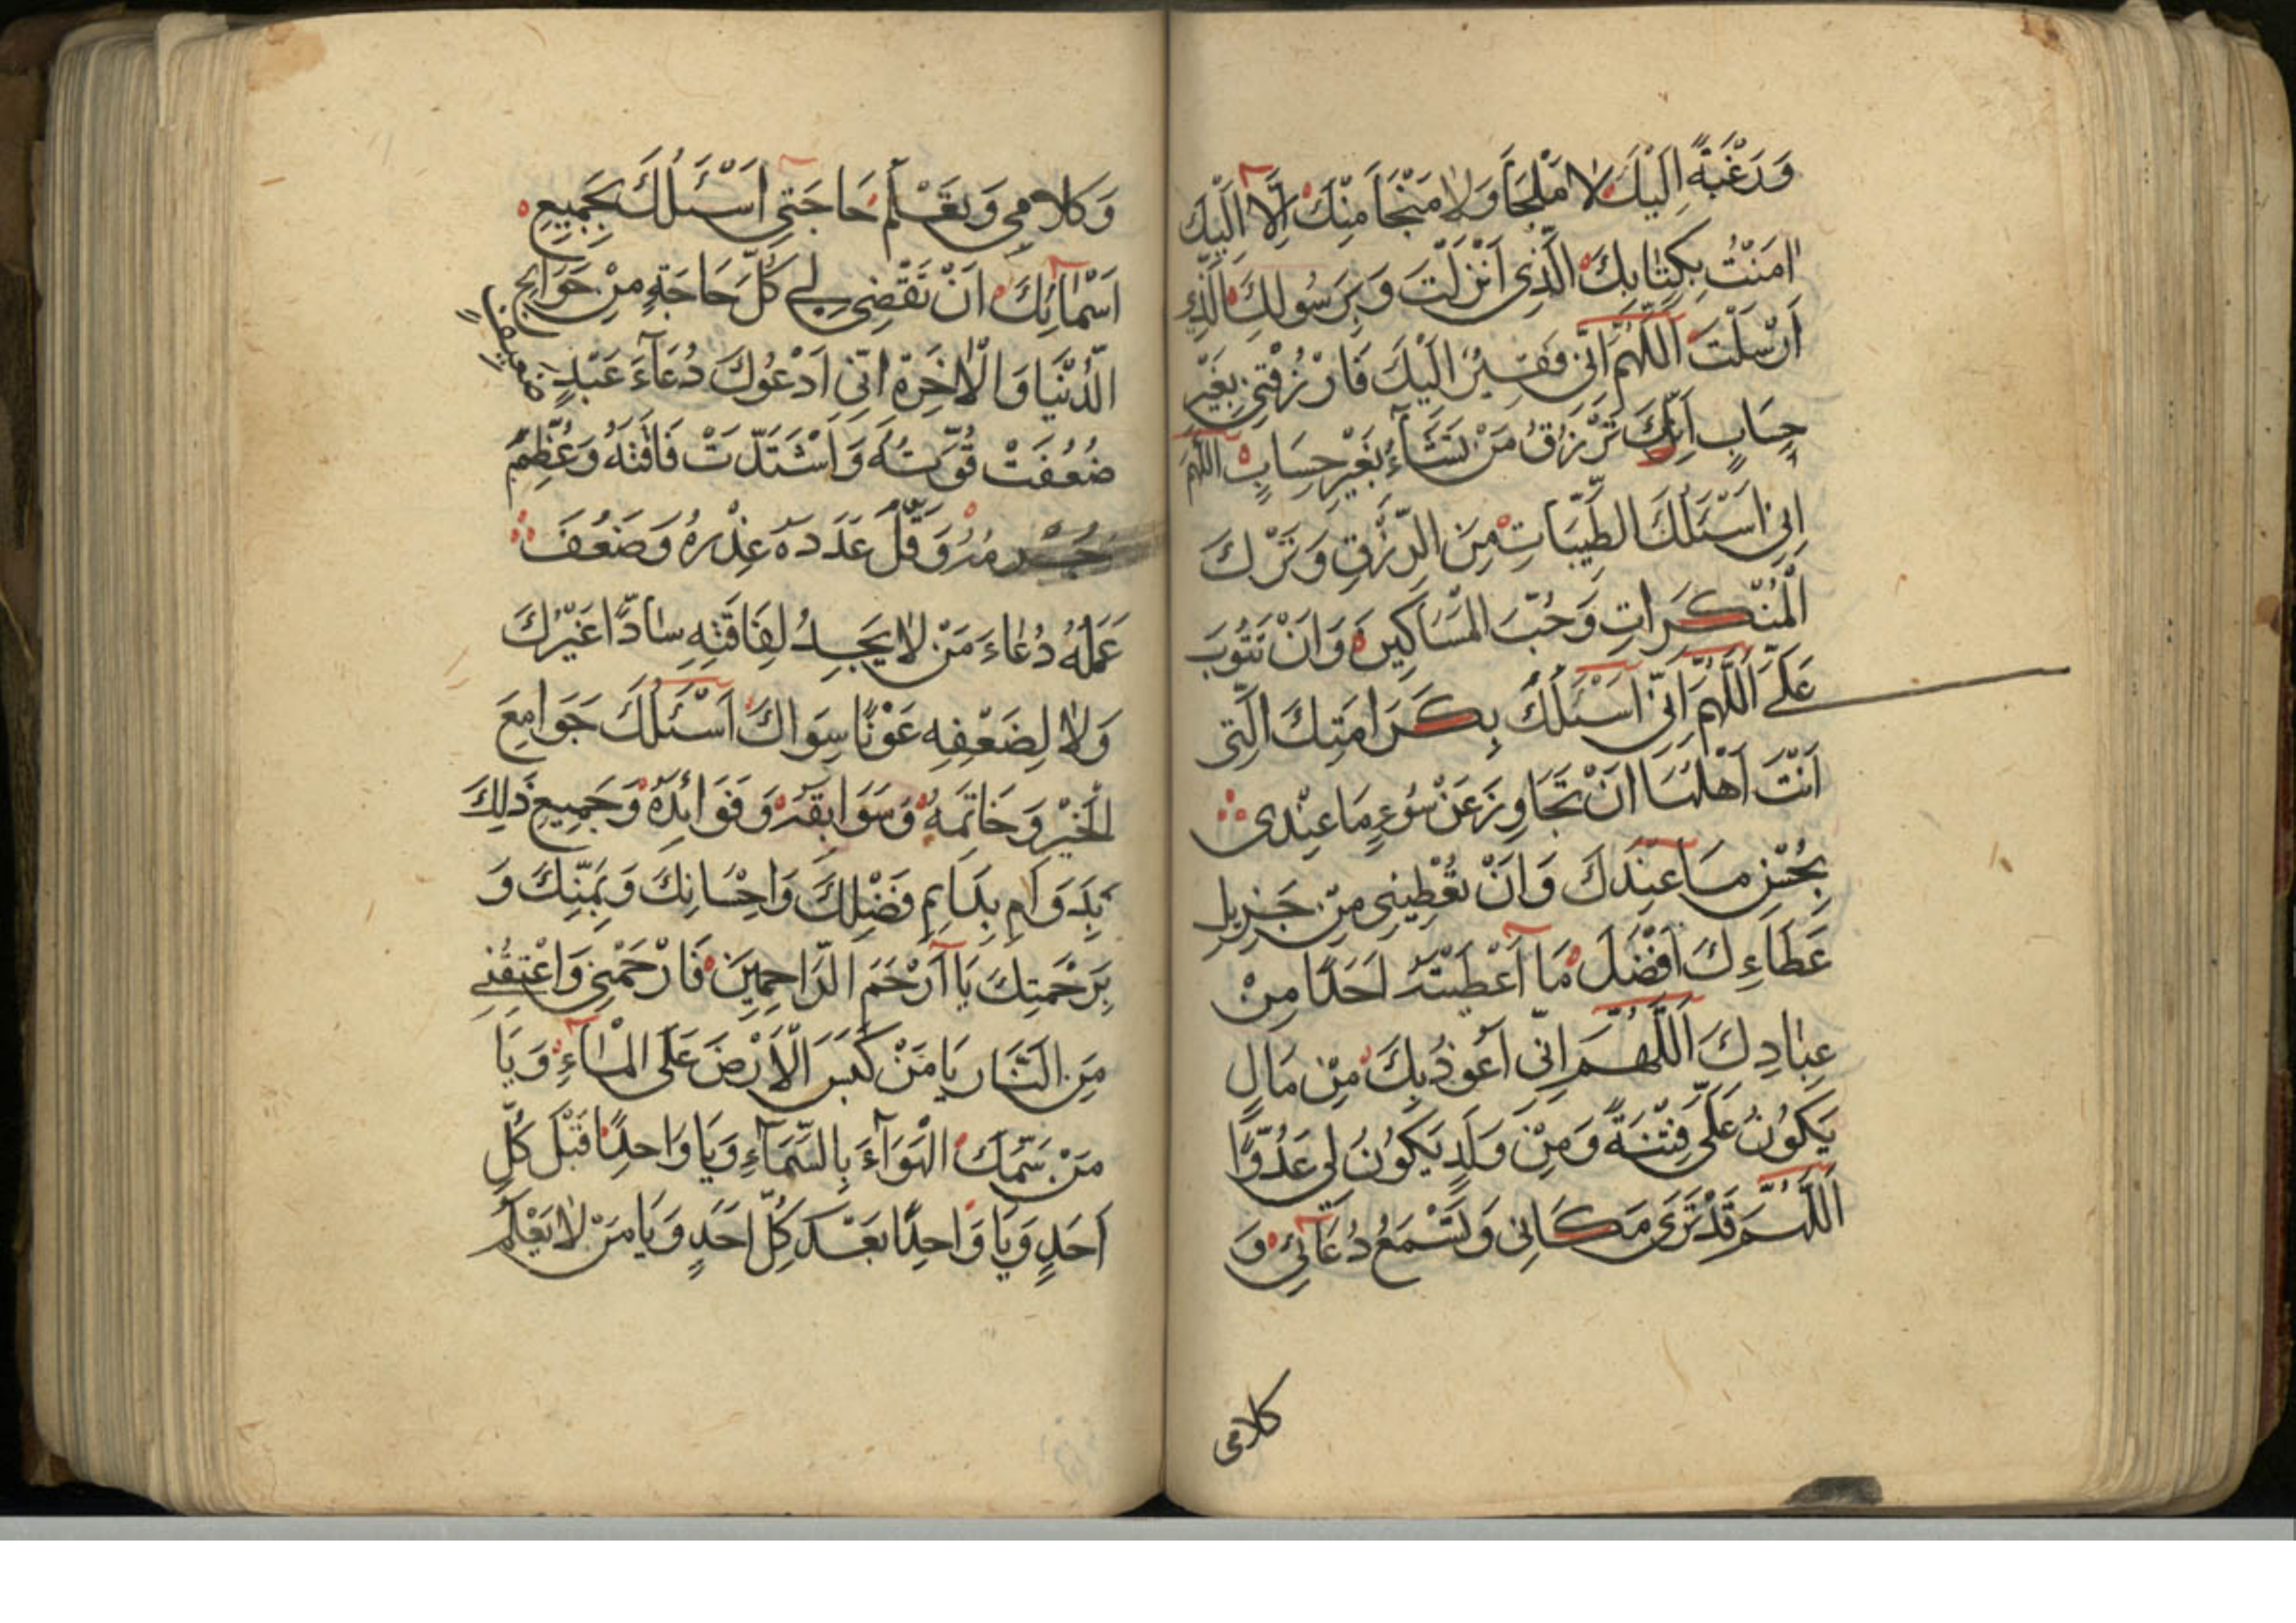 وَرَغْبَةً اِلَيْكَ لَا مَلْجَأَ وَلَا مَنْجَأَ مِنْكَ اِلَّا اِلَيْكَ
اٰمَنْتُ بِكِتَابِكَ الَّذِى اَنْزَلْتَ وَبِرَسُولِكَ الَّذِى
اَرْسَلْتَ اَللّٰهُمَّ اِنِّى فَقِيْرٌ اِلَيْكَ فَارْزُقْنِى بِغَيْرِ
حِسَابٍ اِنَّكَ تَرْزُقُ مَنْ تَشَآءُ بِغَيْرِ حِسَابٍ اَللّٰهُمَّ
اِنِّى اَسْئَلُكَ الطَّيِّبَاتِ مِنَ الرِّزْقِ وَتَرْكَ
الْمُنْكَرَاتِ وَحُبَّ الْمَسَاكِيْنِ وَاَنْ تَتُوْبَ
عَلَىَّ اَللّٰهُمَّ اِنِّى اَسْئَلُكَ بِكَرَامَتِكَ الَّتِى
اَنْتَ اَهْلُهَا اَنْ تَجَاوِزَ عَنْ سُوْءِ مَا عِنْدِى
بِحُسْنِ مَا عِنْدَكَ وَاَنْ تُعْطِيَنِى مِنْ جَزِيْلِ
عَطَاءِكَ اَفْضَلَ مَا اَعْطَيْتَهُ اَحَدًا مِنْ
عِبَادِكَ اَللّٰهُمَّ اِنِّى اَعُوْذُ بِكَ مِنْ مَالٍ
يَكُوْنُ عَلَىَّ فِتْنَةً وَمِنْ وَلَدٍ يَكُوْنُ لِى عَدُوًّا
اَللّٰهُمَّ قَدْ تَرَى مَكَانِى وَتَسْمَعُ دُعَآئِى وَ
كلامى
وَكَلَامِى وَتَعْلَمُ حَاجَتِى اَسْئَلُكَ بِجَمِيْعِ
اَسْمَائِكَ اَنْ تَقْضِىَ لِى كُلَّ حَاجَةٍ مِنْ حَوَائِجِ
الدُّنْيَا وَالْاٰخِرَةِ اِنِّى اَدْعُوْكَ دُعَآءَ عَبْدٍ ضعيفٍ
ضَعُفَتْ قُوَّتُهُ وَاشْتَدَّتْ فَاقَتُهُ وَعَظُمَ
جُرْمُهُ وَقَلَّ عَدَدَهُ عُذْرُهُ وَضَعُفَ
عَمَلُهُ دُعَاءَ مَنْ لَا يَجِدُ لِفَاقَتِهِ سَادًّا غَيْرَكَ
وَلَا لِضَعْفِهِ عَوْنًا سِوَاكَ اَسْئَلُكَ جَوَامِعَ
الْخَيْرِ وَخَاتِمَهُ وَسَوَابِقَهُ وَفَوَائِدَهُ وَجَمِيْعَ ذٰلِكَ
بِدَوَامِ بِدَايِمِ فَضْلِكَ وَاِحْسَانِكَ وَبِمَنِّكَ وَ
بِرَحْمَتِكَ يَا اَرْحَمَ الرَّاحِمِيْنَ فَارْحَمْنِى وَاَعْتِقْنِى
مِنَ النَّارِ يَا مَنْ كَبَسَ الْاَرْضَ عَلَى الْمَآءِ وَيَا
مَنْ سَمَّكَ الْهَوَآءَ بِالسَّمَآءِ وَيَا وَاحِدًا قَبْلَ كُلِّ
اَحَدٍ وَيَا وَاحِدًا بَعْدَ كُلِّ اَحَدٍ وَيَا مَنْ لَا يَعْلَمُ